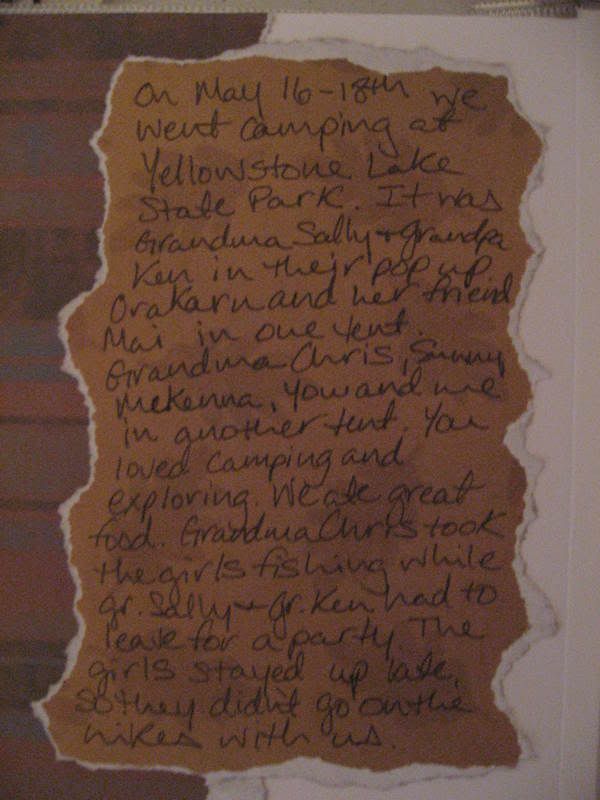 On May 16-18th we
went camping at
Yellowstone Lake
State Park. It was
Grandma Sally + Grandpa
Ken in their pop up,
Orakarn and her friend
Mai in one tent.
Grandma Chris, Sunny
McKenna, You and me
in another tent. You
loved camping and
exploring. We ate great
food. Grandma Chris took
the girls fishing while
gr. Sally + Gr. Ken had to
leave for a party. The
girls stayed up late,
so they didn't go on the
hikes with us.